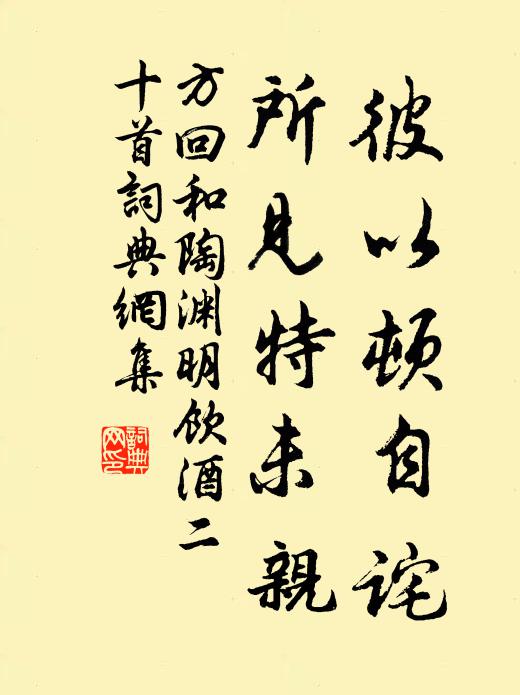 彼以頓自詫
所見特未親
方回和陶淵明飲酒二
十首詞典網集
詞典
网印